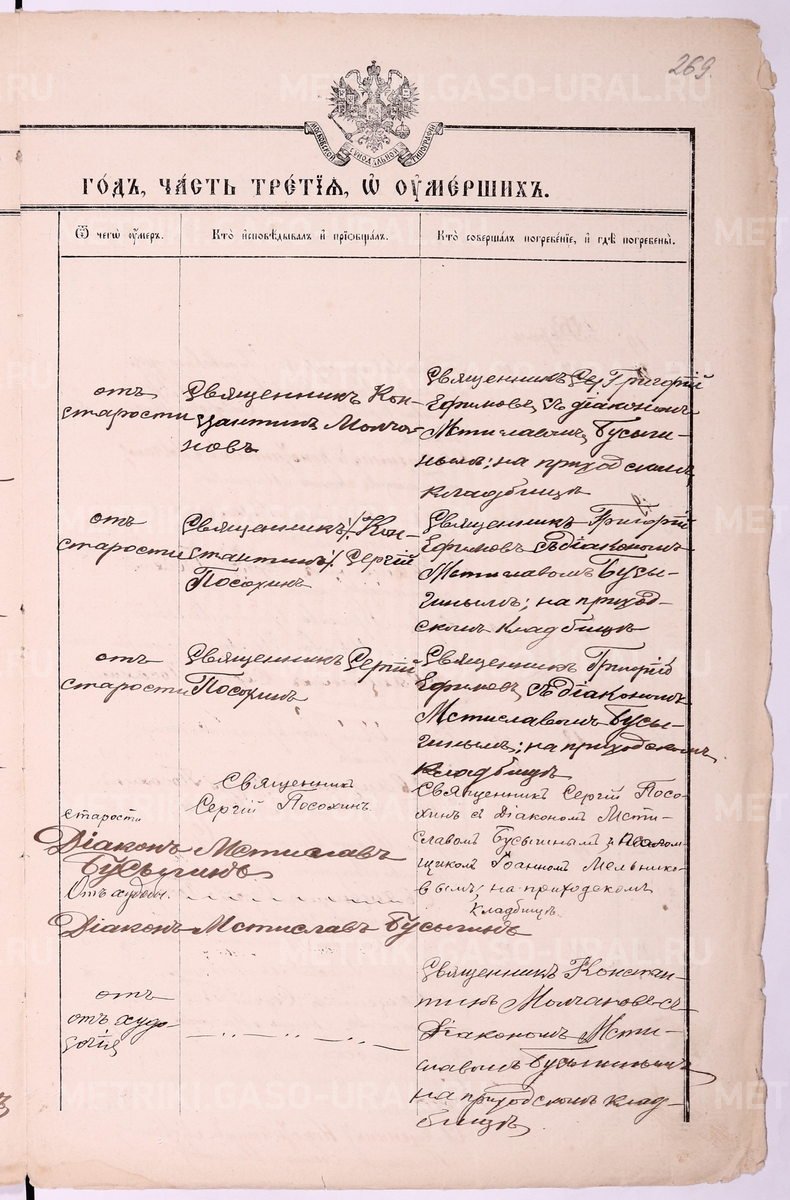 269.
МОСКОВСКОЙ СѴНОДАЛЬНОЙ ТИПОГРАФІИ
ГОДЪ, ЧАСТЬ ТРЕТІЯ, Ѡ ОУМЕРШИХЪ.
Ѿ чегѡ оумеръ.
Кто исповѣдывалъ и пріобщалъ.
Кто совершалъ погребеніе, и гдѣ погребены.
отъ
старости
Священникъ Кон-
стантинъ Молча-
новъ
Священникъ Григорій
Ефимовъ, съ діакономъ
Мстиславомъ Бусыги-
нымъ; на приходскомъ
кладбищѣ
отъ
старости
Священникъ /Кон-
стантинъ/ Сергій
Посохинъ
Священникъ Григорій
Ефимовъ съ діакономъ
Мстиславомъ Бусы-
гинымъ; на приход-
скомъ кладбищѣ
отъ
старости
Священникъ Сергій
Посохинъ
Священникъ Григорій
Ефимовъ, съ діакономъ
Мстиславомъ Бусы-
гинымъ; на приходскомъ
кладбищѣ
старости
Священникъ
Сергій Посохинъ.
Священникъ Сергій Посо-
хинъ съ Діакономъ Мсти-
славомъ Бусыгинымъ и Псалом-
щикомъ Іоанномъ Мельнико-
вымъ; на приходскомъ
кладбищѣ.
Діаконъ Мстиславъ
Бусыгинъ
Отъ худобы.
Діаконъ Мстиславъ Бусыгинъ
отъ
отъ худо-
Священникъ Констан-
тинъ Молчановъ съ
Діакономъ Мсти-
славомъ Бусыгинымъ
на приходскомъ клад-
бищѣ.
METRIKI.GASO-URAL.RU